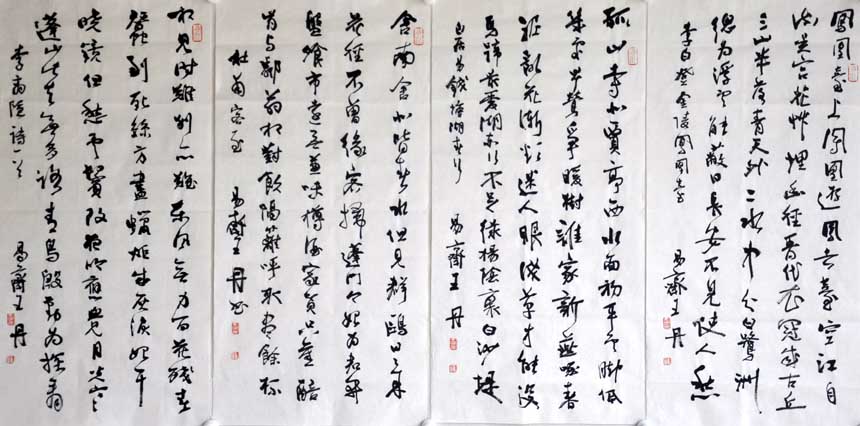 鳳凰臺上鳳凰遊鳳去臺空江自
流吳宮花草埋幽徑晉代衣冠成古丘
三山半落青天外二水中分白鷺洲
總為浮雲能蔽日長安不見使人愁
李白登金陵鳳凰台 易齋王丹
孤山寺北賈亭西水面初平雲腳低
幾處早鶯爭暖樹誰家新燕啄春
泥亂花漸欲迷人眼淺草才能沒
馬蹄最愛湖東行不足綠楊陰裏白沙堤
白居易錢塘湖春行 易齋王丹
舍南舍北皆春水但見群鷗日日來
花徑不曾緣客掃蓬門今始為君開
盤飧市遠無兼味樽酒家貧只舊醅
肯與鄰翁相對飲隔籬呼取盡餘杯
杜甫客至 易齋王丹書
相見時難別亦難東風無力百花殘春
蠶到死絲方盡蠟炬成灰淚始干
曉鏡但愁雲鬢改夜吟應覺月光寒
蓬山此去無多路青鳥殷勤為探看
李商隱詩一首 易齋王丹